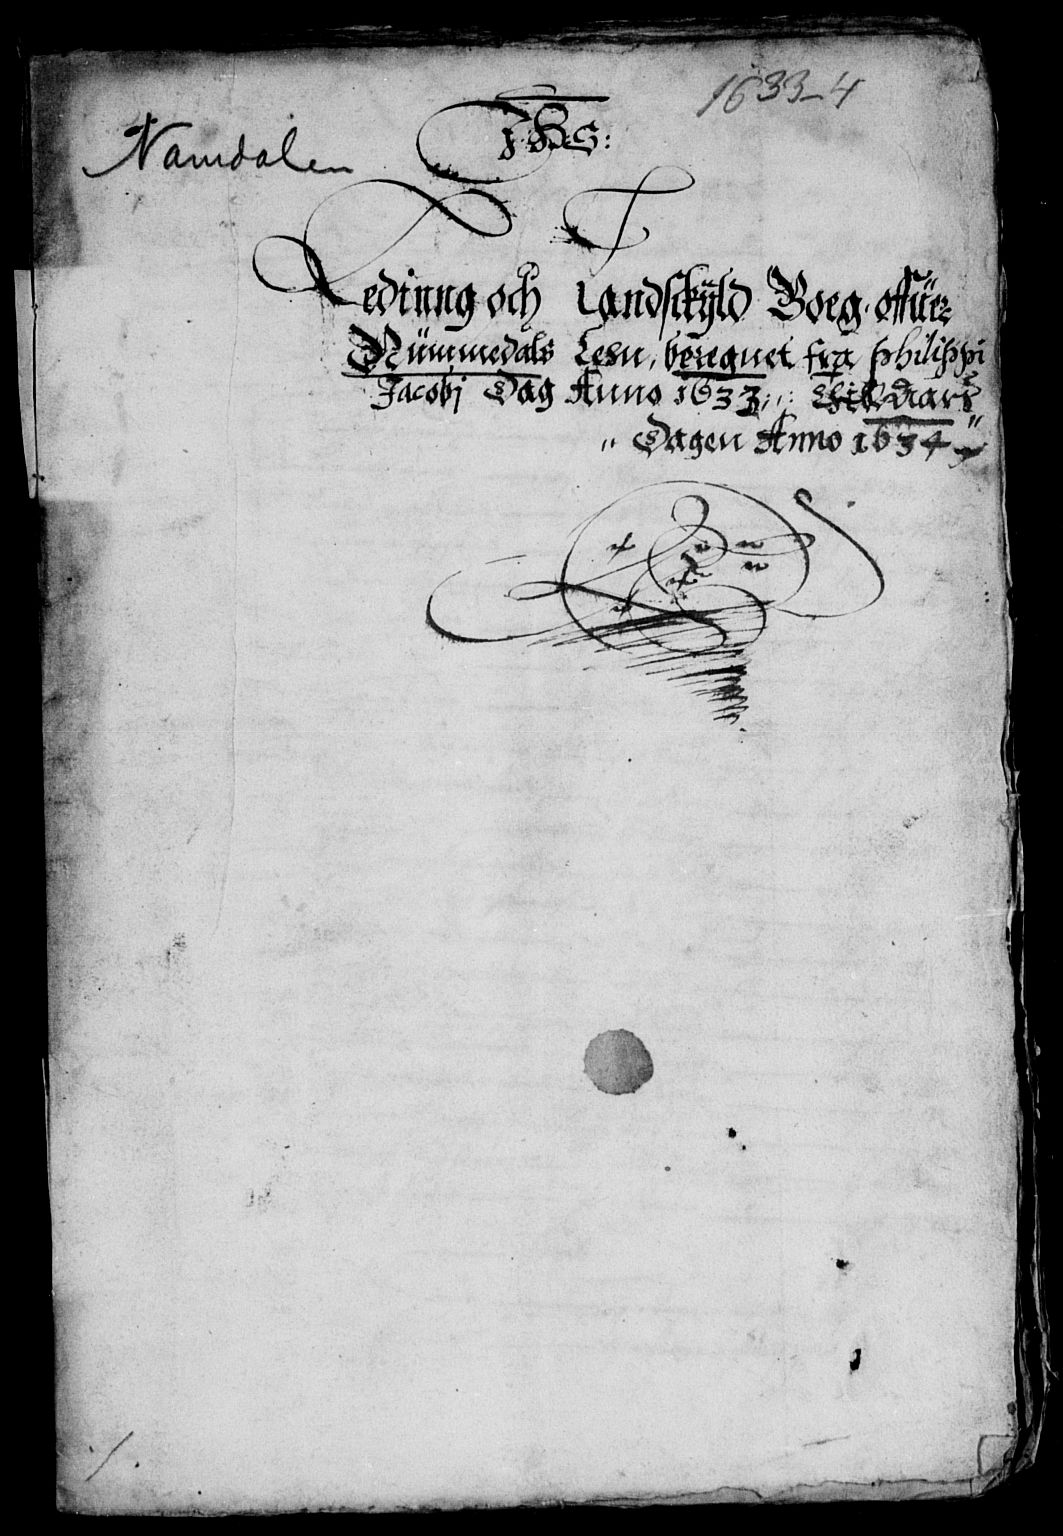 1633-4
Namdalen
JHS:
Ledinng och Landsckÿld Boeg offüer
Nümmedals Lehn, beregnet fra philippi
Jacobj Dag Anno 1633 Aars
Dagen Anno 1634